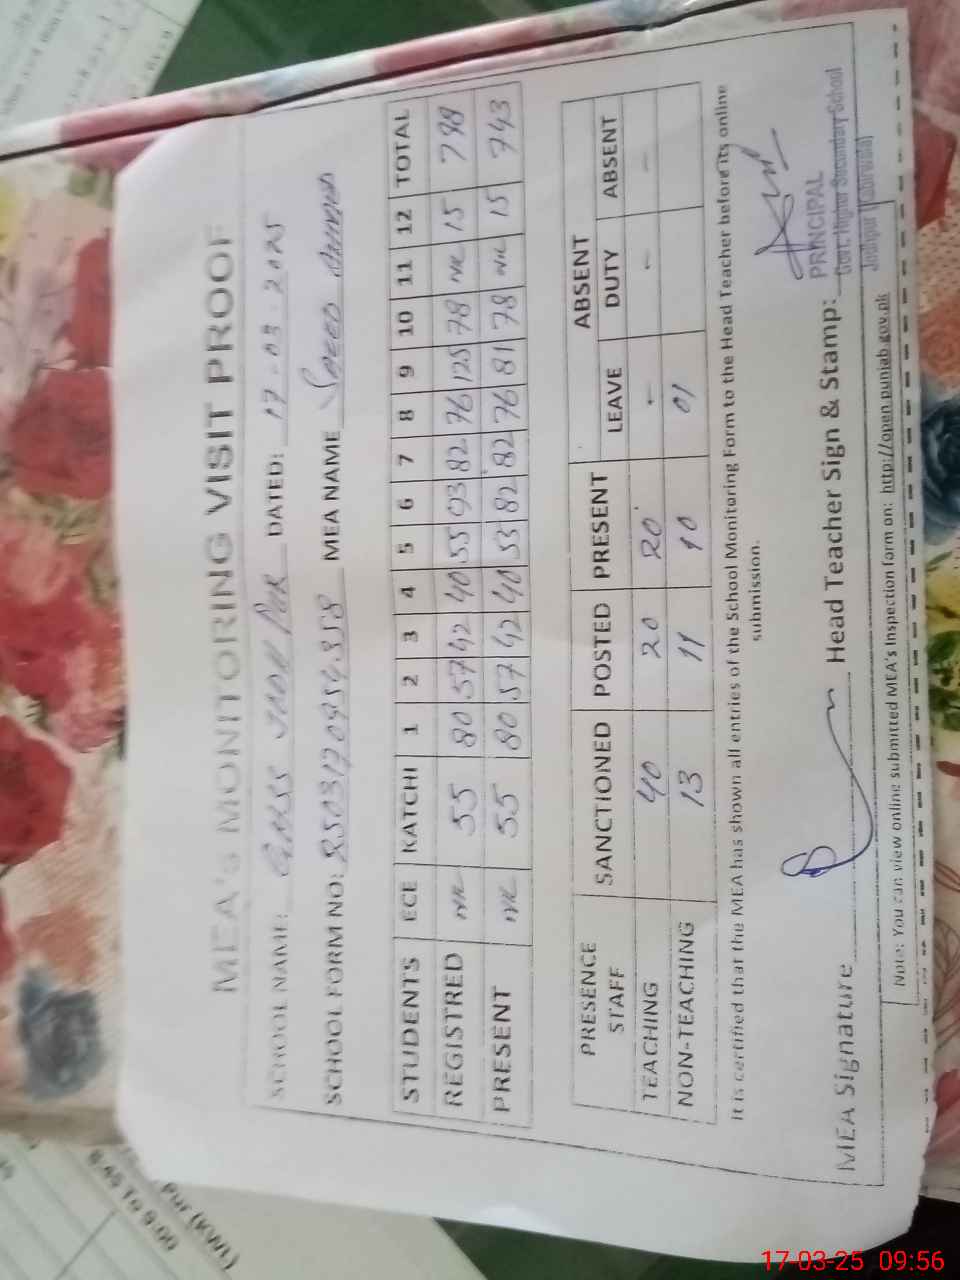 MEA's MONITORING VISIT PROOF
SCHOOL NAME: GHSS JODH PUR DATED: 17-03-2025
SCHOOL FORM NO: 2503170954358 MEA NAME Saeed Ahmad
STUDENTS ECE KATCHI 1 2 3 4 5 6 7 8 9 10 11 12 TOTAL
REGISTRED NIL 55 80 57 42 40 55 93 82 76 125 78 NIL 15 798
PRESENT NIL 55 80 57 42 40 53 82 82 76 81 78 NIL 15 743
PRESENCE STAFF SANCTIONED POSTED PRESENT ABSENT
LEAVE DUTY ABSENT
TEACHING 40 20 20 - - -
NON-TEACHING 13 11 10 01
It is certified that the MEA has shown all entries of the School Monitoring Form to the Head Teacher before its online
submission.
MEA Signature Head Teacher Sign & Stamp:
PRINCIPAL
Govt. Higher Secondary School
Jodhpur (Kabirwala)
Note: You can view online submitted MEA's Inspection form on: http://open.punjab.gov.pk
8:45 To 9:00
Pur (KWL)
17-03-25 09:56